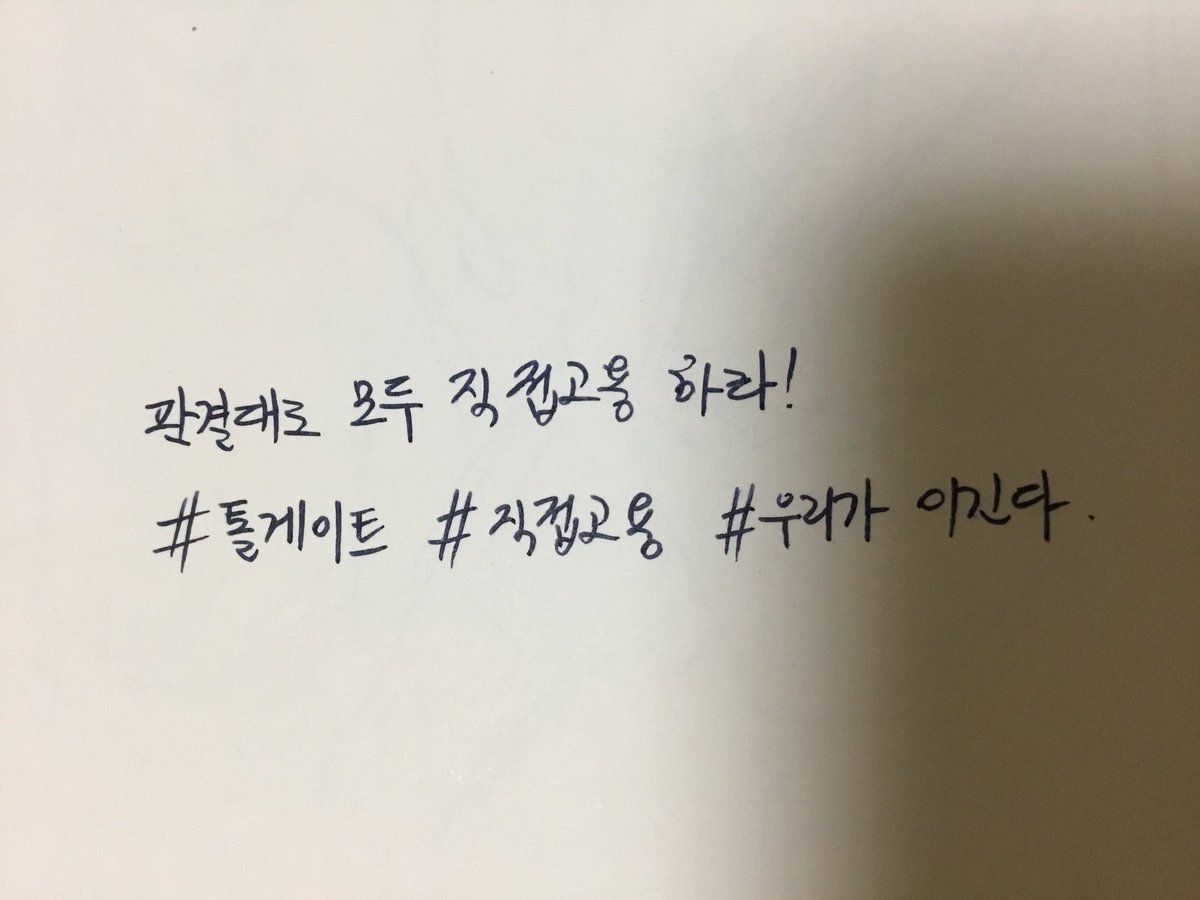 판결대로 모두 직접고용 하라!
#톨게이트 #직접고용 #우리가 이긴다.